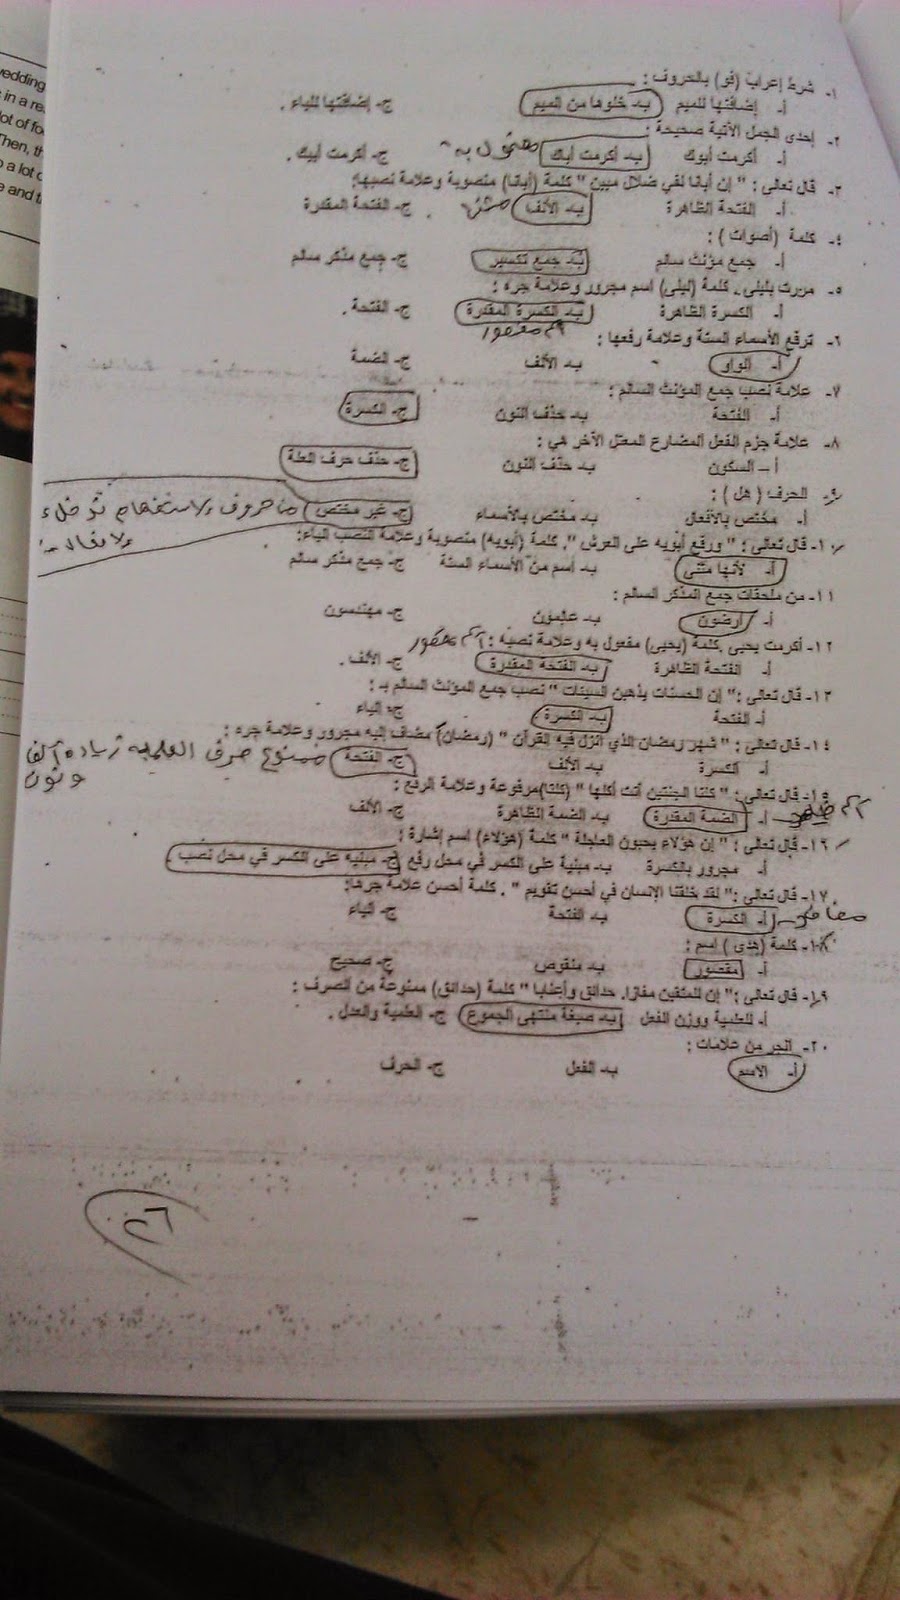 wedding
in a re
lot of fo
Then, th
o a lot o
e and t
١- شرط إعراب (فو) بالحروف :
أ- إضافتها للميم ب- خلوها من الميم ج- إضافتها للياء .
٢- إحدى الجمل الآتية صحيحة :
أ- أكرمت أبوك ب- أكرمت أباك مفعول به ج- أكرمت أبيك .
٣- قال تعالى : " إن أبانا لفي ضلال مبين " كلمة (أبانا) منصوبة وعلامة نصبها:
أ- الفتحة الظاهرة ب- الألف ج- الفتحة المقدرة
٤- كلمة (أصوات) :
أ- جمع مؤنث سالم ب- جمع تكسير ج- جمع مذكر سالم
٥- مررت بليلى . كلمة (ليلى) اسم مجرور وعلامة جره :
أ- الكسرة الظاهرة ب- الكسرة المقدرة ج- الفتحة .
مقصور
٦- ترفع الأسماء الستة وعلامة رفعها :
أ- الواو ب- الألف ج- الضمة
٧- علامة نصب جمع المؤنث السالم :
أ- الفتحة ب- حذف النون ج- الكسرة
٨- علامة جزم الفعل المضارع المعتل الآخر هي :
أ- السكون ب- حذف النون ج- حذف حرف العلة
٩- الحرف (هل) :
أ- مختص بالأفعال ب- مختص بالأسماء ج- غير مختص
١٠- قال تعالى : " ورفع أبويه على العرش ". كلمة (أبويه) منصوبة وعلامة النصب الياء:
أ- لأنها مثنى ب- اسم من الأسماء الستة ج- جمع مذكر سالم
١١- من ملحقات جمع المذكر السالم :
أ- أرضون ب- عالمون ج- مهندسون
١٢- أكرمت يحيى .كلمة (يحيى) مفعول به وعلامة نصبه : اسم مقصور
أ- الفتحة الظاهرة ب- الفتحة المقدرة ج- الألف .
١٣- قال تعالى :" إن الحسنات يذهبن السيئات " نصب جمع المؤنث السالم بـ :
أ- الفتحة ب- الكسرة ج- الياء
١٤- قال تعالى : " شهر رمضان الذي أنزل فيه القرآن " (رمضان) مضاف إليه مجرور وعلامة جره :
أ- الكسرة ب- الألف ج- الفتحة ممنوع صرف العلمية زيادة ألف
ونون
١٥- قال تعالى: " كلتا الجنتين آتت أكلها " (كلتا)مرفوعة وعلامة الرفع :
أ- الضمة المقدرة ب- الضمة الظاهرة ج- الألف
١٦- قال تعالى : " إن هؤلاء يحبون العاجلة " كلمة (هؤلاء) اسم إشارة :
أ- مجرور بالكسرة ب- مبنية على الكسر في محل رفع ج- مبنيه على الكسر في محل نصب .
١٧- قال تعالى :" لقد خلقنا الإنسان في أحسن تقويم " . كلمة أحسن علامة جرها:
أ- الكسرة ب- الفتحة ج- الياء
١٨- كلمة (هدى) اسم :
أ- مقصور ب- منقوص ج- صحيح
١٩- قال تعالى :" إن للمتقين مفازا. حدائق وأعنابا " كلمة (حدائق) ممنوعة من الصرف :
أ- للعلمية ووزن الفعل ب- صيغة منتهى الجموع ج- العلمية والعدل .
٢٠- الجر من علامات :
أ- الاسم ب- الفعل ج- الحرف